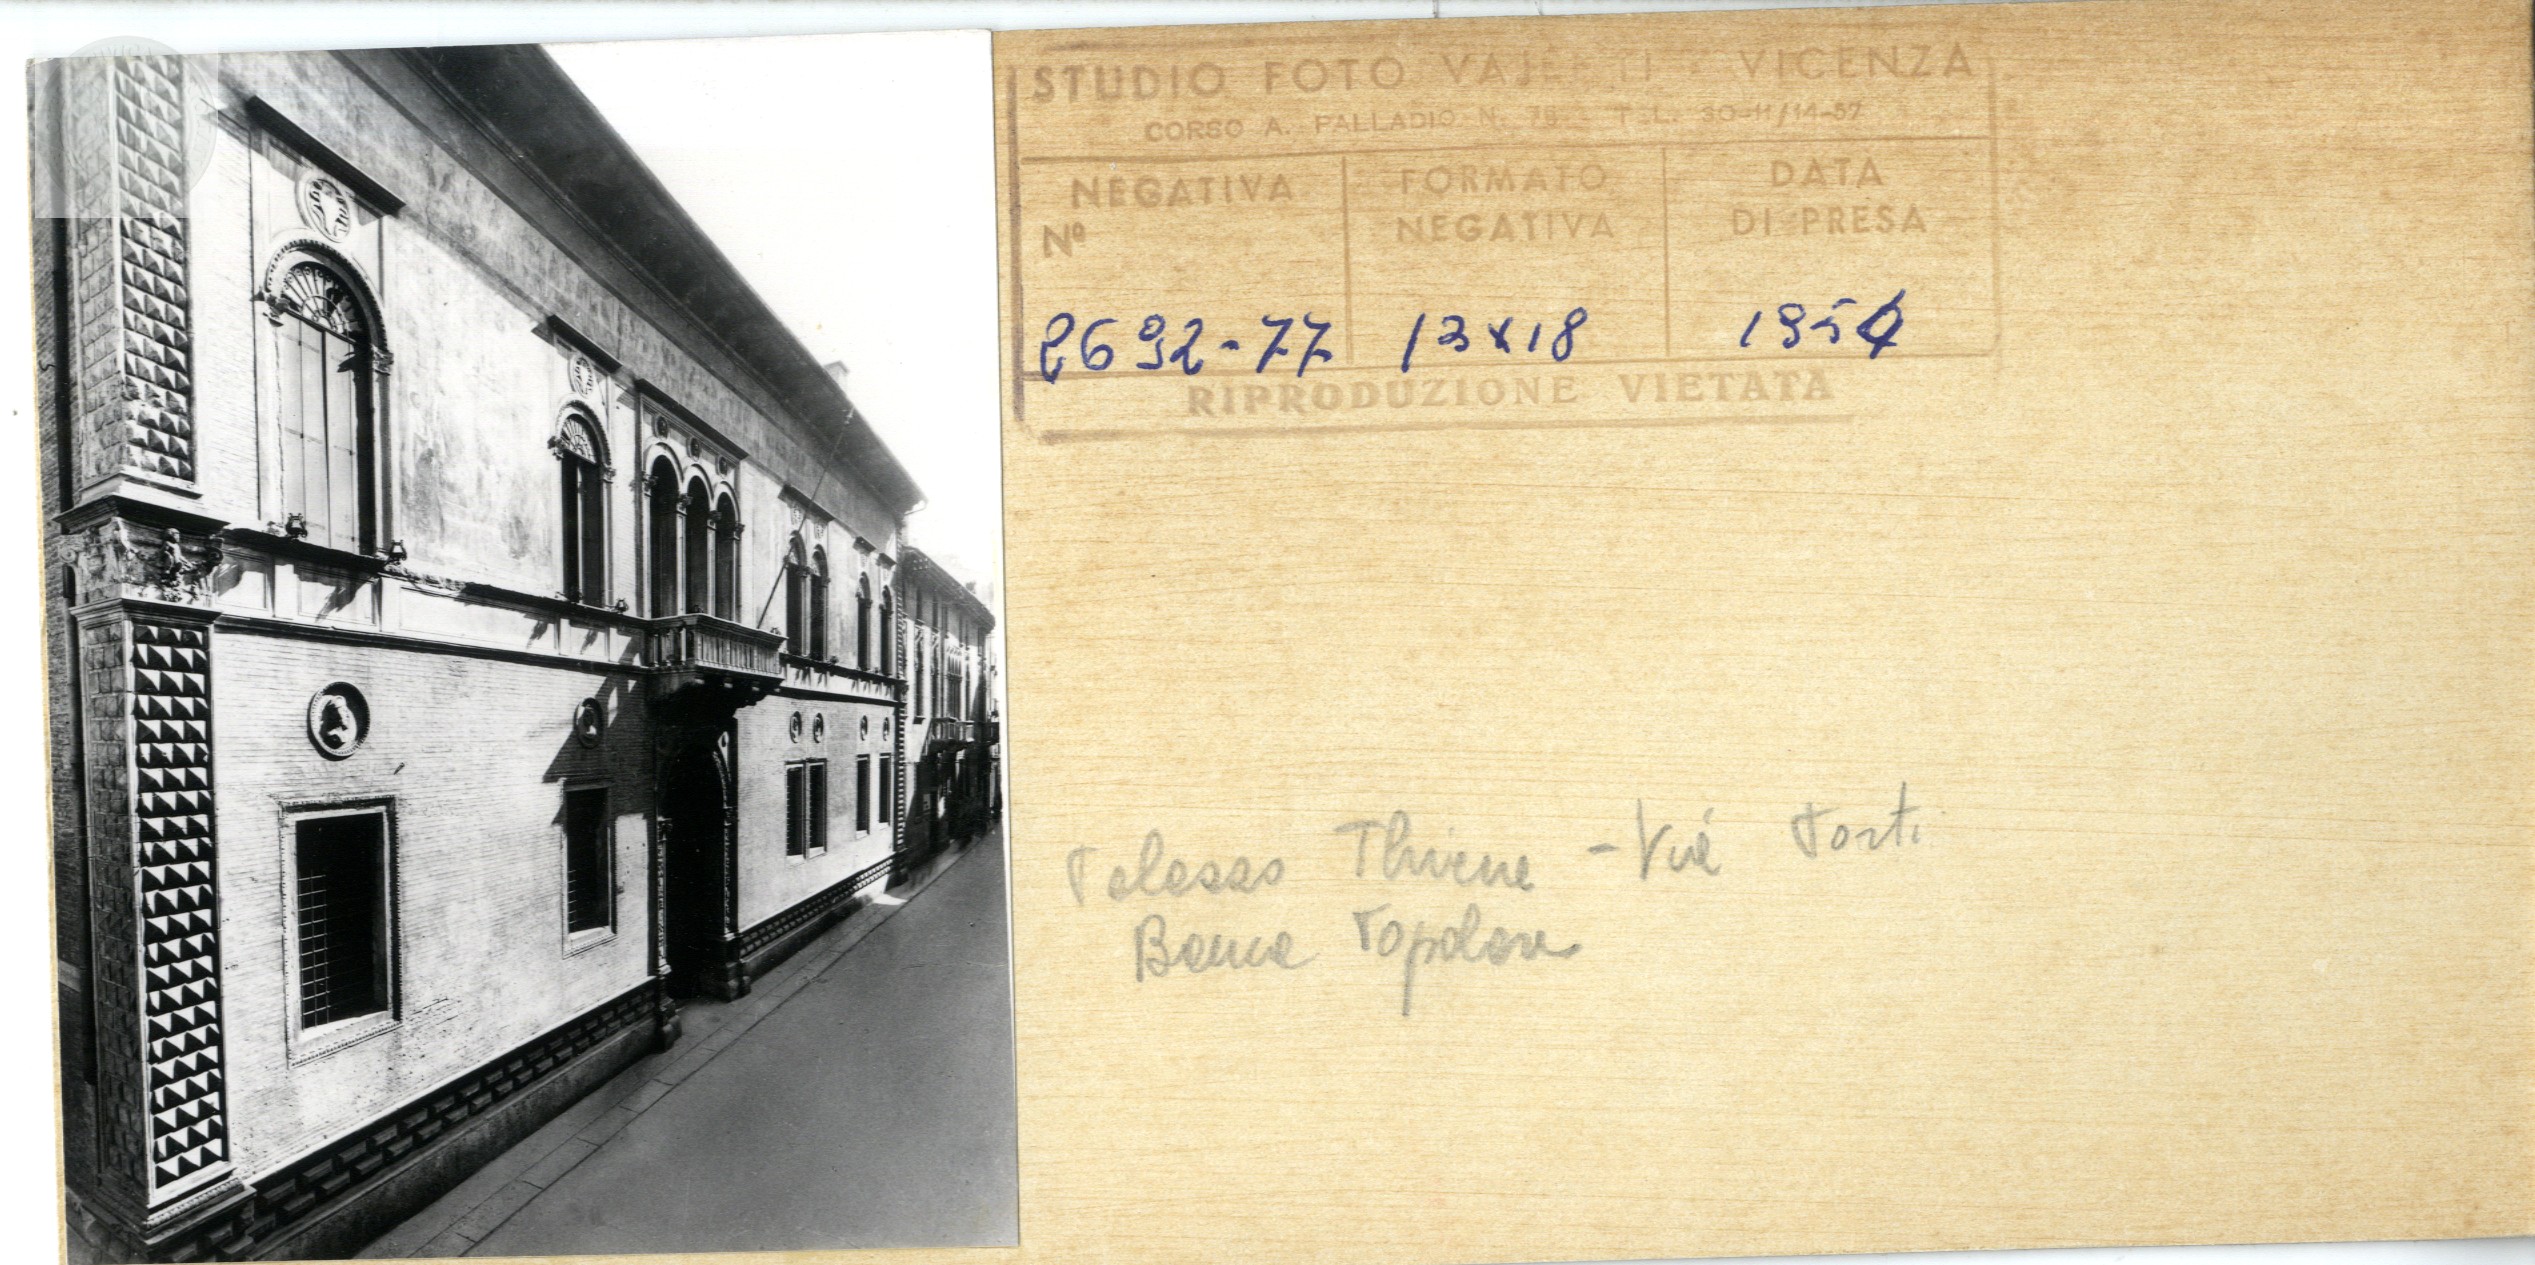 STUDIO FOTO VAJENTI - VICENZA
CORSO A. PALLADIO N. 76 - TEL. 30-11/14-57
NEGATIVA
Nº
FORMATO
NEGATIVA
DATA
DI PRESA
2692-77
13x18
1954
RIPRODUZIONE VIETATA
Palazzo Thiene - Via Porti
Banca Popolare